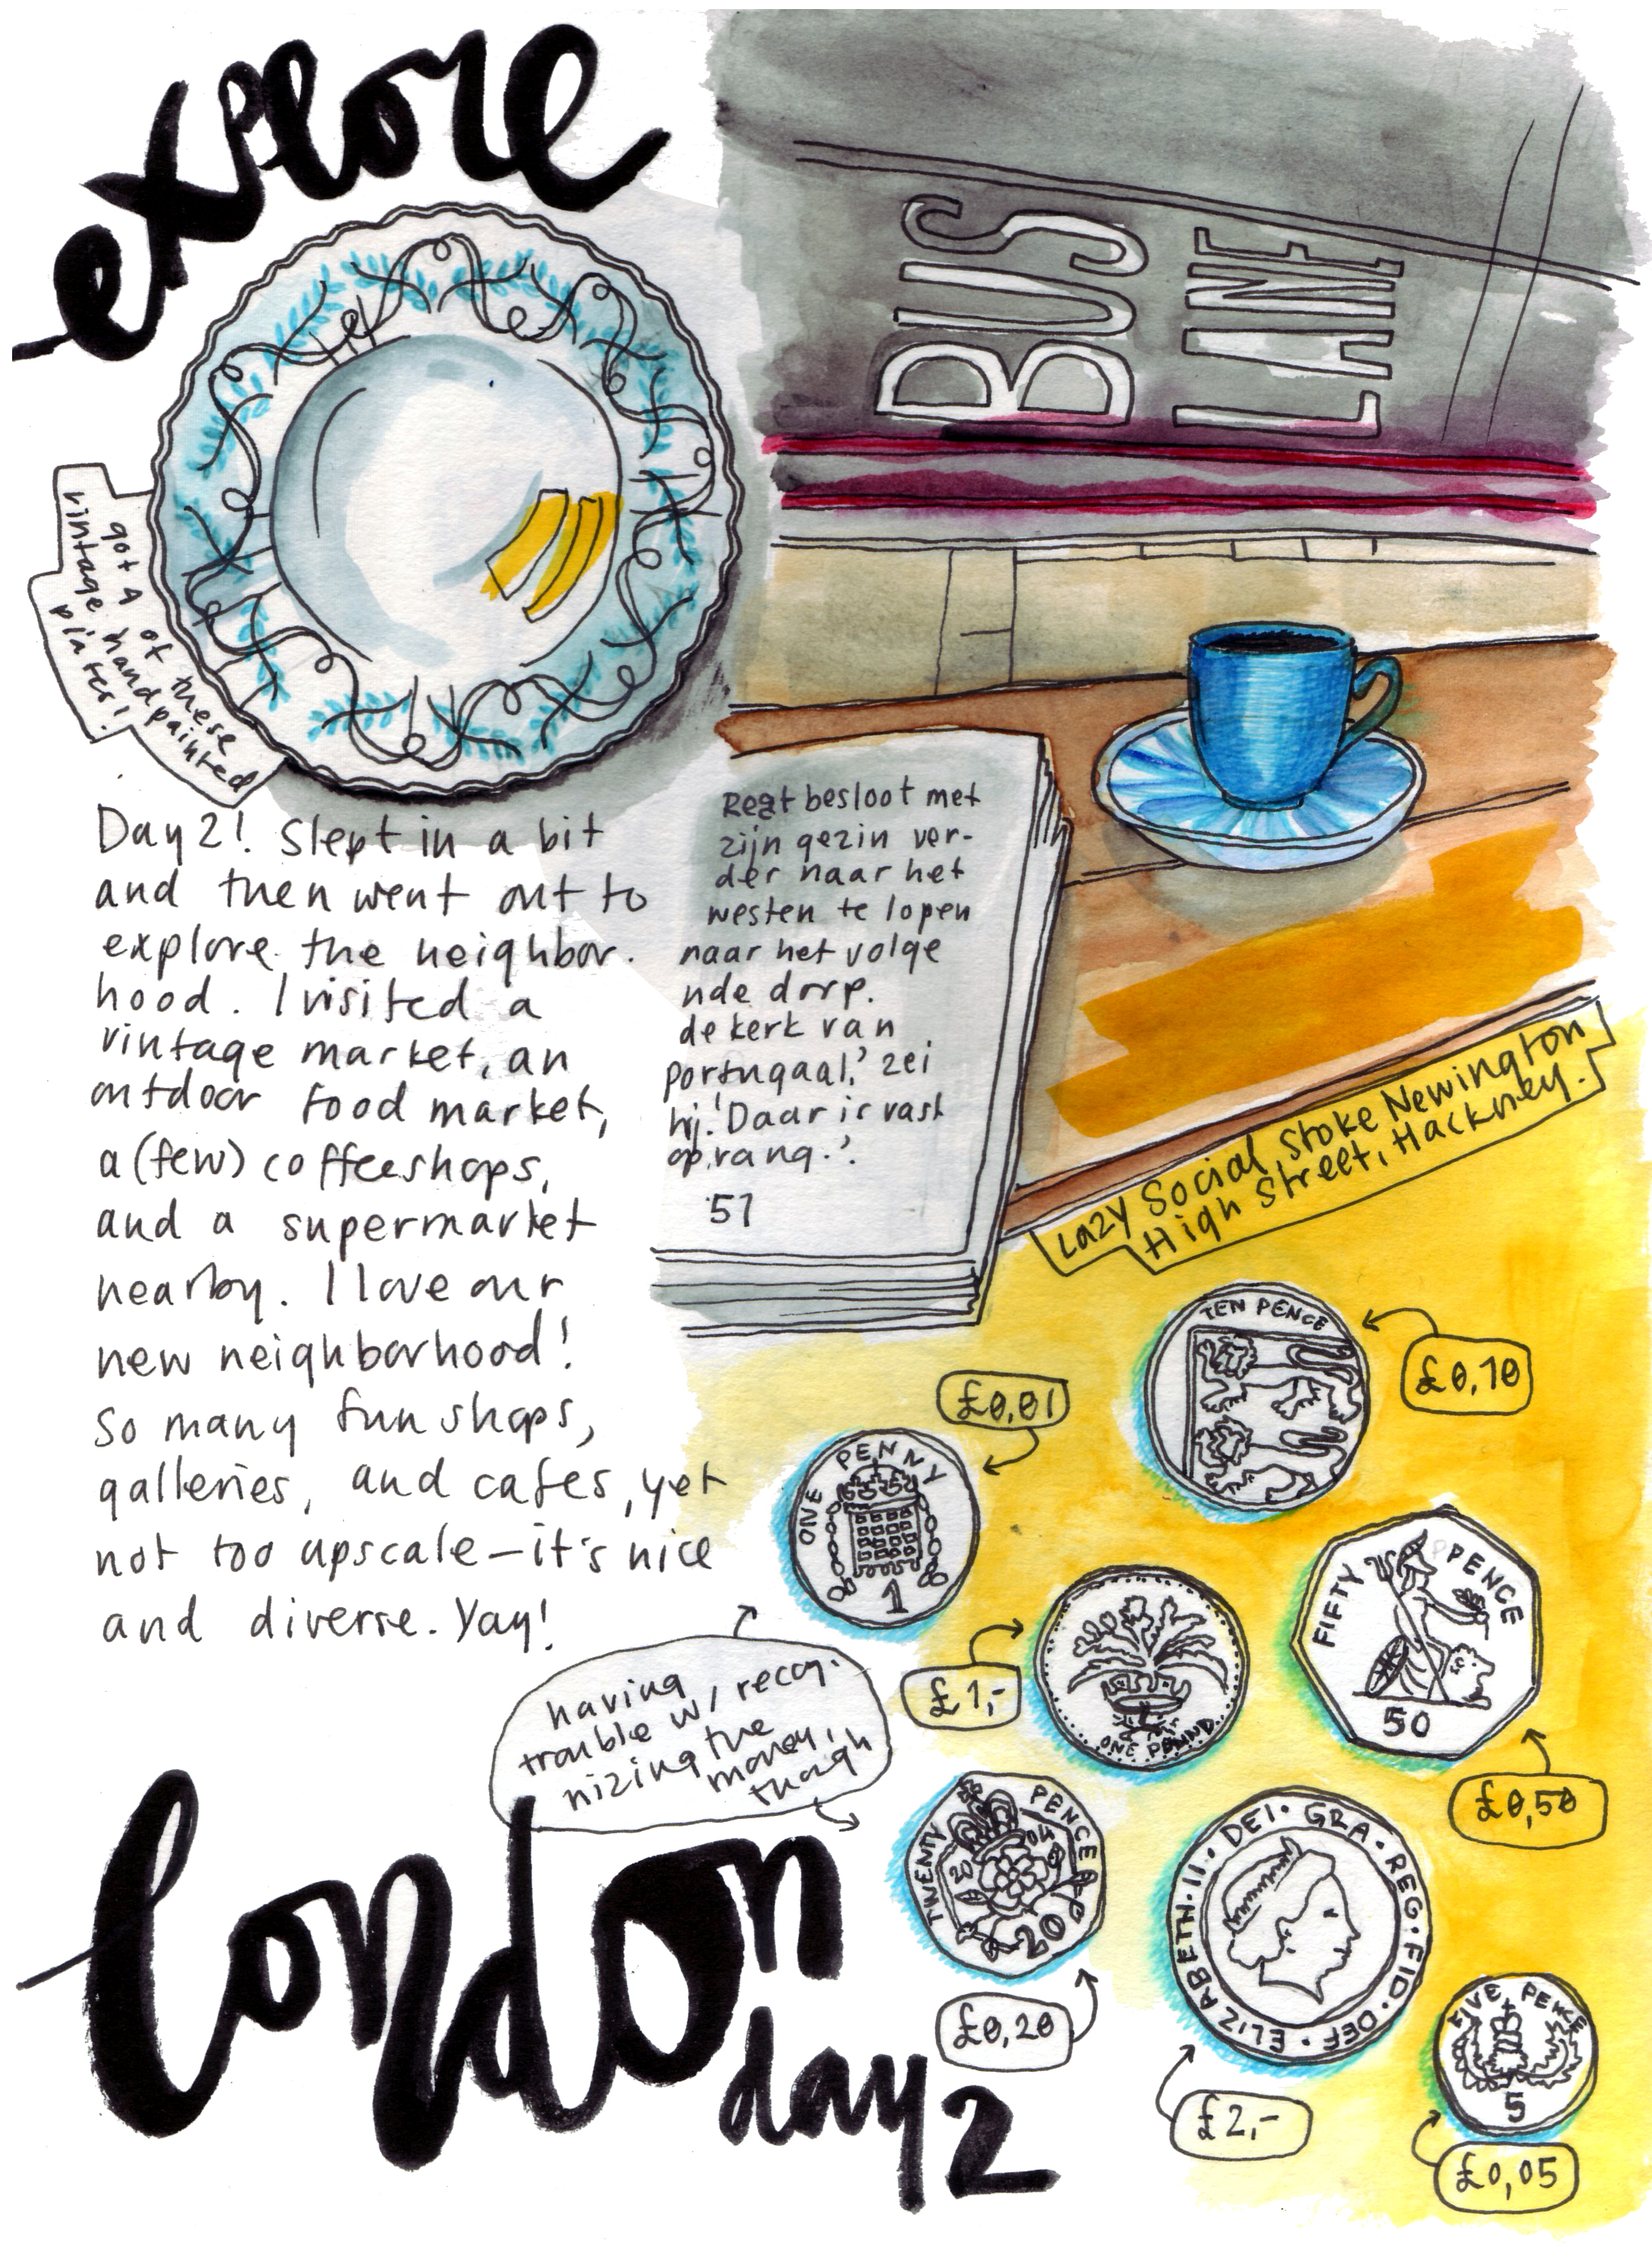 explore
BUS
LANE
got 4 of these
vintage handpainted
plates!
Day 2! Slept in a bit
and then went out to
explore the neighbor-
hood. I visited a
vintage market, an
outdoor food market,
a (few) coffeeshops,
and a supermarket
nearby. I love our
new neighborhood!
So many fun shops,
galleries, and cafes, yet
not too upscale – it's nice
and diverse. Yay!
besloot met
zijn gezin ver-
der naar het
westen te lopen
naar het volge
nde dorp.
de kerk van
portugaal,' zei
hij. 'Daar is vast
opvang.'.
51
Lazy Social, Stoke Newington
High Street, Hackney.
TEN PENCE
£0,10
£0,01
ONE PENNY
1
£1,-
ONE POUND
FIFTY PENCE
50
£0,50
having
trouble w/ recog-
nizing the
money,
though
TWENTY PENCE
20 04
20
£0,20
ELIZABETH·II· DEI· GRA· REG·FID·DEF·
£2,-
FIVE PENCE
5
£0,05
london
day 2